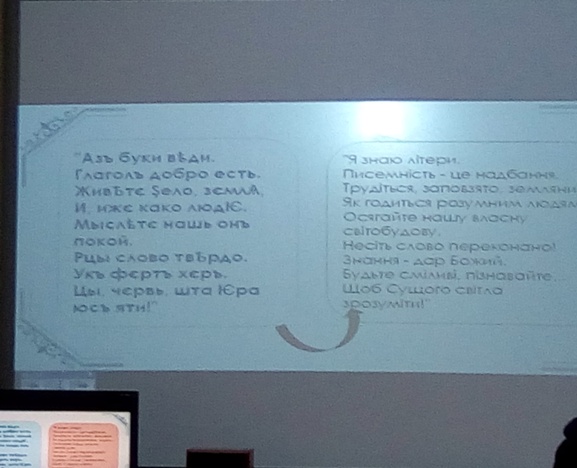 "Азъ буки вѣди.
Глаголъ добро есть.
Живѣте Ѕело, землѦ,
И, иже како людіЄ.
Мыслѣте нашъ онъ
покой.
Рцы слово твѣрдо.
Укъ фертъ херъ.
Цы, червь, шта ІЄра
юсъ яти!"
"Я знаю літери.
Писемність - це надбання.
Трудіться, заповзято, земляни
Як годиться розумним людям
Осягайте нашу власну
світобудову.
Несіть слово переконано!
Знання - дар Божий.
Будьте сміливі, пізнавайте...
Щоб Сущого світла
зрозуміти!"